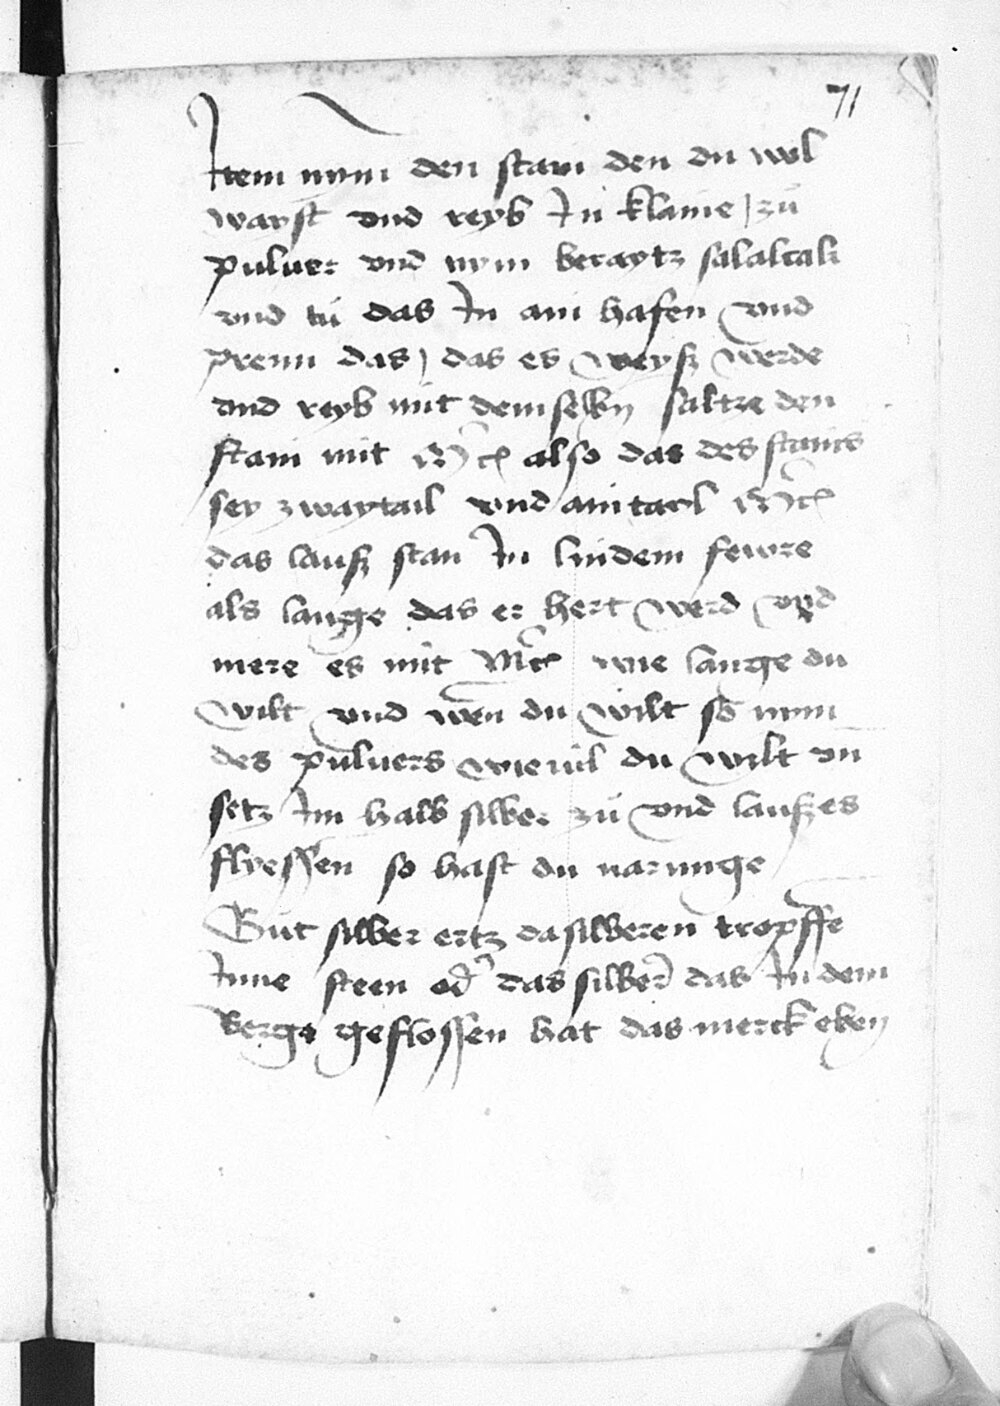 71
Item nym den stain den du wol
wayst vnd reyb In klaine / zů
puluer vnd nym beraytz salalcali
vnd tů das In ain hafen vnd
prenn das / das es weysz werde
vnd reyb mit demselbn saltze den
stain mit also das des stains
sey zwaytail vnd ain tayl
das lausz stan In lindem fewre
als lange das er hert werd vnd
mere es mit wie lange du
wilt vnd wen du wilt so nym
des puluers wieuil du wilt vn
setz Im halb silber zů vnd lausz es
flyessen so hast du narunge
Gut silber ertz da silberen tropffe
Inne steen od' das silber das In dem
Berge geflossen hat das merck eben